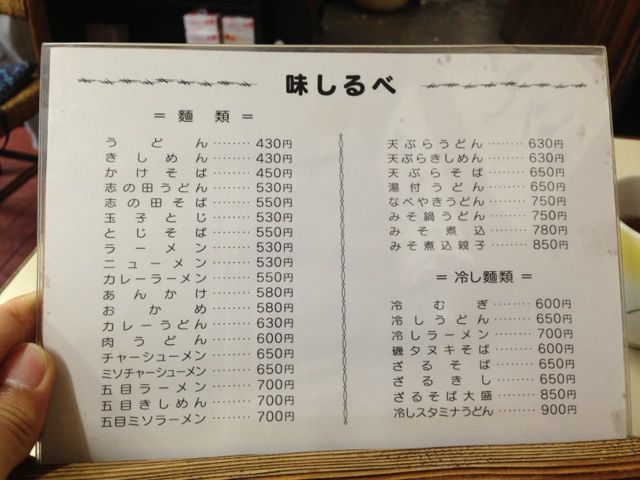 味しるべ
= 麺類 =
うどん········430円
きしめん········430円
かけそば········450円
志の田うどん········530円
志の田そば········550円
玉子とじ········530円
とじそば········550円
ラーメン········530円
ニューメン········530円
カレーラーメン········550円
あんかけ········580円
おかめ········580円
カレーうどん········630円
肉うどん········600円
チャーシューメン········650円
ミソチャーシューメン········650円
五目ラーメン········700円
五目きしめん········700円
五目ミソラーメン········700円
天ぷらうどん········630円
天ぷらきしめん········630円
天ぷらそば········650円
湯付うどん········650円
なべやきうどん········750円
みそ鍋うどん········750円
みそ煮込········780円
みそ煮込親子········850円
= 冷し麺類 =
冷むぎ········600円
冷しうどん········650円
冷しラーメン········700円
磯タヌキそば········600円
ざるそば········650円
ざるきし········650円
ざるそば大盛········850円
冷しスタミナうどん········900円